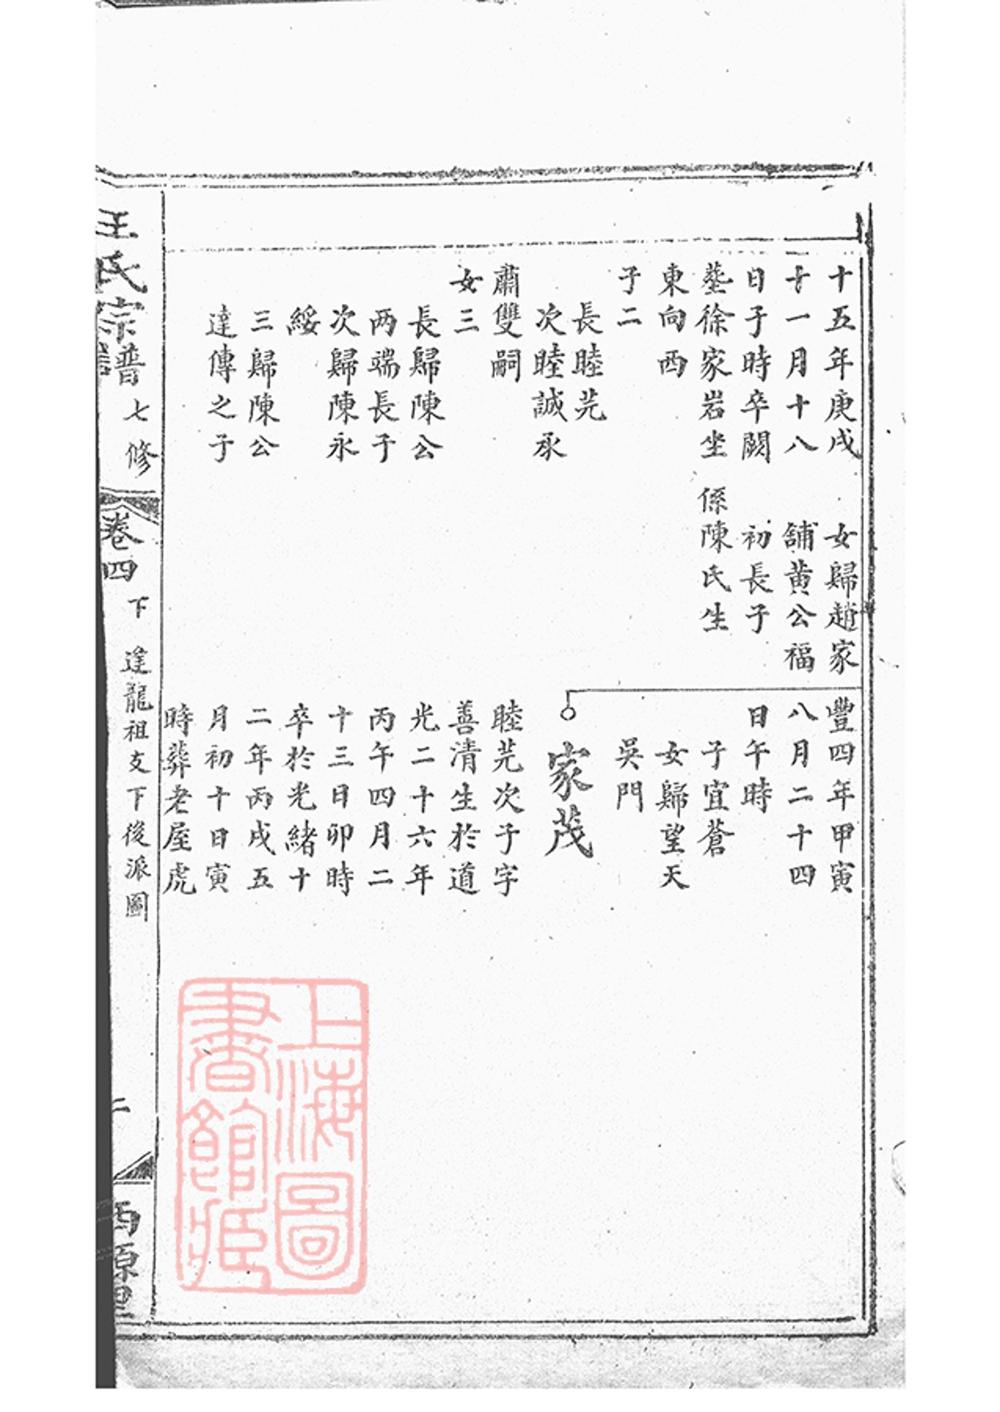 十五年庚戌
十一月十八
日子時卒闕
塟徐家岩坐
東向西
子二
長睦芫
次睦誠承
肅雙嗣
女三
長歸陳公
两端長子
次歸陳永
綏
三歸陳公
達傳之子
女歸趙家
舖黄公福
初長子
係陳氏生
豐四年甲寅
八月二十四
日午時
子宜蒼
女歸望天
吳門
家茂
睦芫次子字
善清生於道
光二十六年
丙午四月二
十三日卯時
卒於光緒十
二年丙戌五
月初十日寅
時葬老屋虎
王氏宗譜七修
卷四下
逹龍祖支下後派圖
西原里
上海圖
書館藏